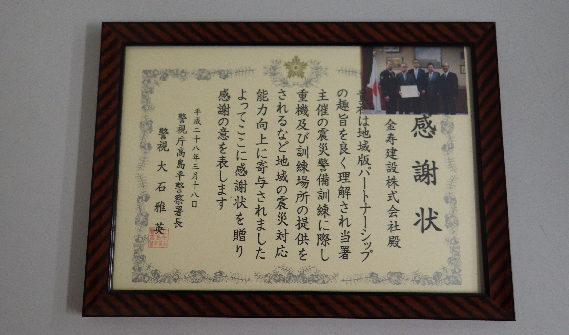 感謝状
金寿建設株式会社殿
貴社は地域版パートナーシップ
の趣旨を良く理解され当署
主催の震災警備訓練に際し
重機及び訓練場所の提供を
されるなど地域の震災対応
能力向上に寄与されました
よってここに感謝状を贈り
感謝の意を表します
平成二十八年三月十八日
警視庁高島平警察署長
警視 大石雅英